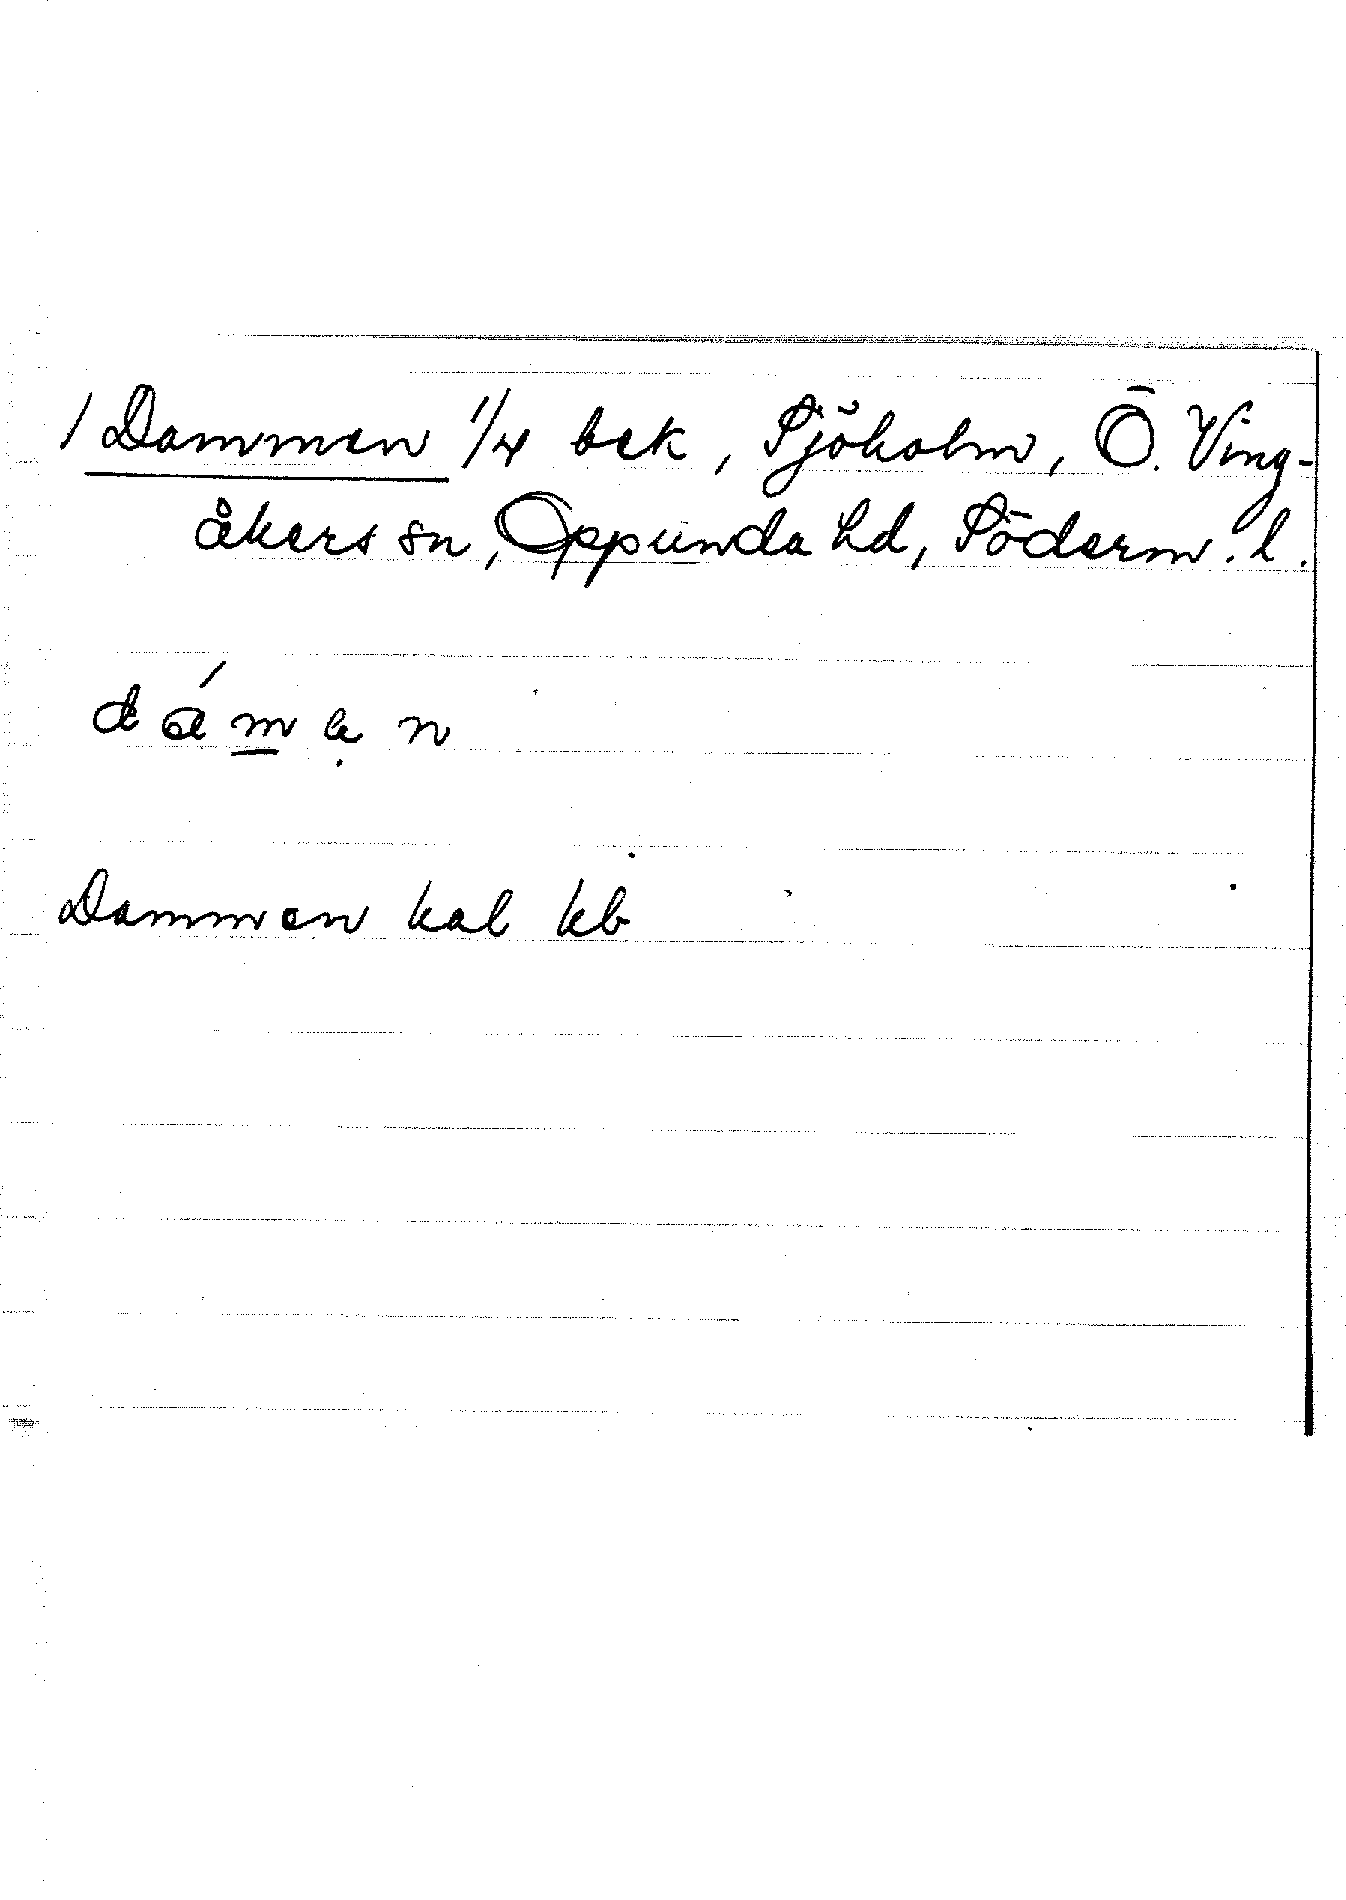 1 Dammen 1/4 bek, Sjöholm, Ö. Ving-
åkers sn, Oppunda hd, Söderm. l.
dámạn
Dammen kal kb